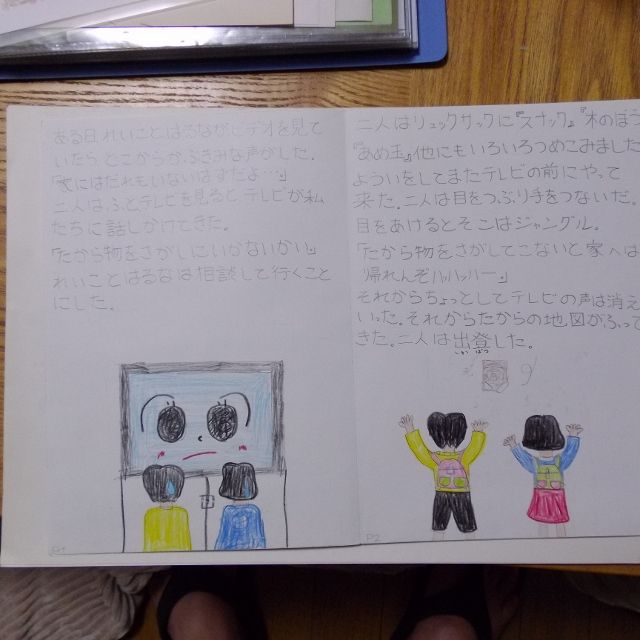 ある日れいことはるながビデオを見て
いたらどこからかぶきみな声がした。
「家にはだれもいないはずだよ…」
二人はふとテレビを見るとテレビが私
たちに話しかけてきた。
「たから物をさがしにいかないかい」
れいことはるなは相談して行くこと
にした。
P1
二人はリュックサックに『スナック』『木のぼう
『あめ玉』他にもいろいろつめこみました
よういをしてまたテレビの前にやって
来た。二人は目をつぶり手をつないだ。
目をあけるとそこはジャングル。
「たから物をさがしてこないと家へは
帰れんぞハハハハー」
それからちょっとしてテレビの声は消え
いった。それからたからの地図がふって
きた。二人は出発した。
P2